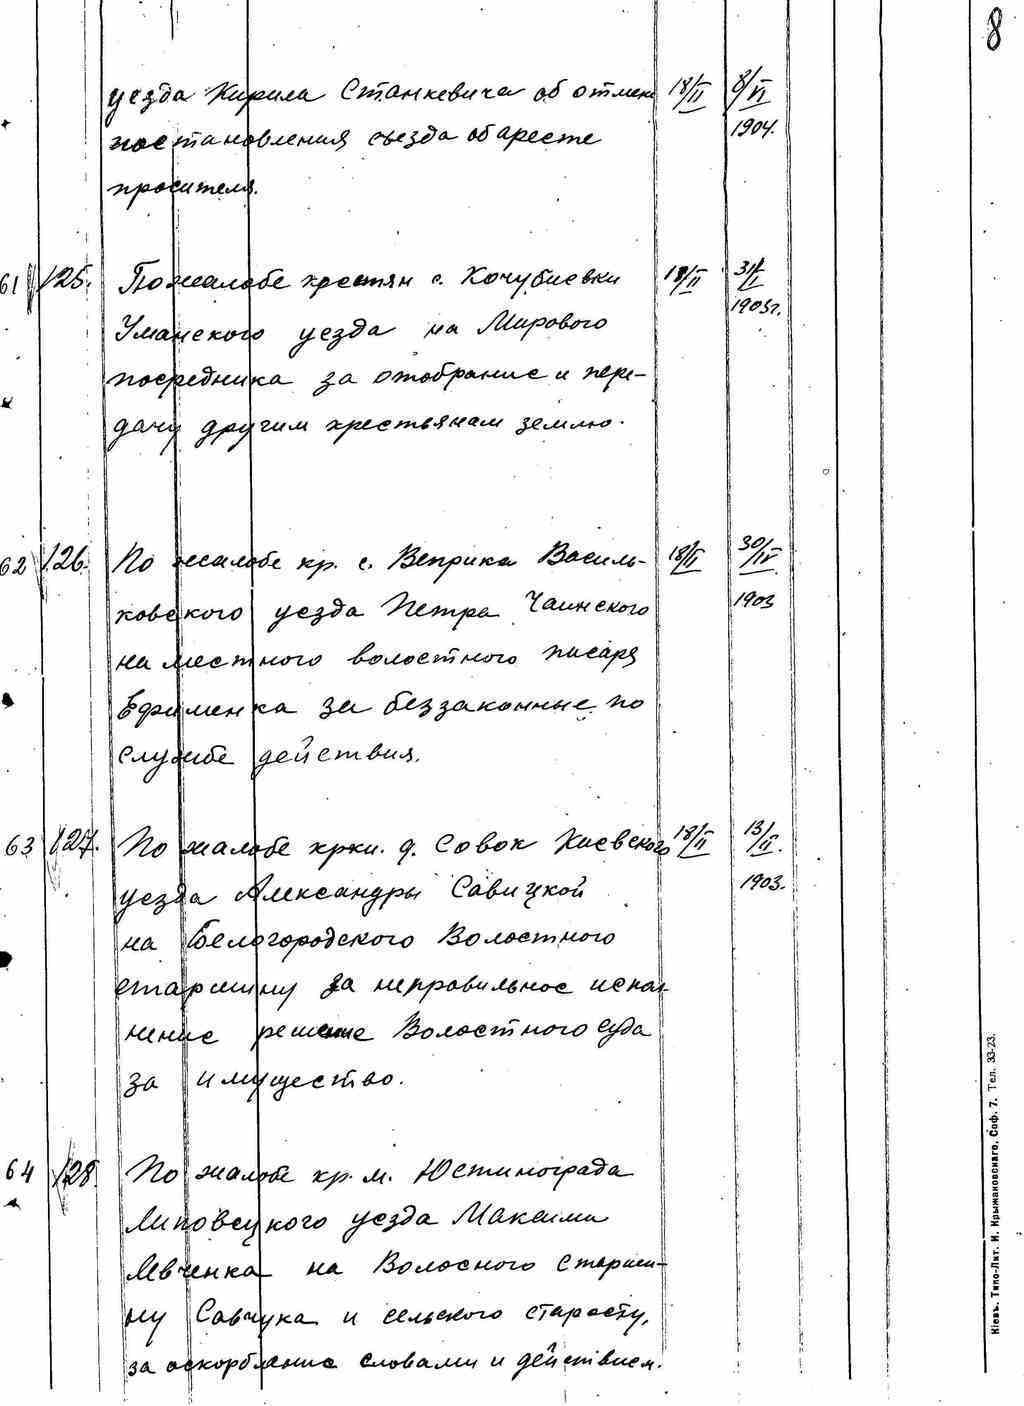 8
уезда Кирила Станкевича об отмене 18/II 8/VI
постановления съезда об аресте 1904.
просителя.
61 125. По жалобе крестян с. Кочубиевки 18/II 31/I
Уманского уезда на Мирового 1903г.
посредника за отобрание и пере-
дачу другим крестьянам землю.
62 126. По жалобе кр. с. Веприка Василь- 18/II 30/IV
ковского уезда Петра Чаинского 1903
на местного волостного писаря
Ефименка за беззаконные по
службе действия.
63 127. По жалобе крки. д. Совок Киевского 18/II 13/II.
уезда Александры Савицкой 1903.
на Белогородского Волостного
старшину за неправильное испол-
нение решение Волостного Суда
за имущество.
64 128. По жалобе кр. м. Юстинограда
Липовецкого уезда Максима
Левченка на Волосного Старши-
ну Савчука и сельского старосту,
за оскорбление словами и действием.
Кіевъ. Типо-Лит. И. Крыжановскаго. Соф. 7. Тел. 33-23.